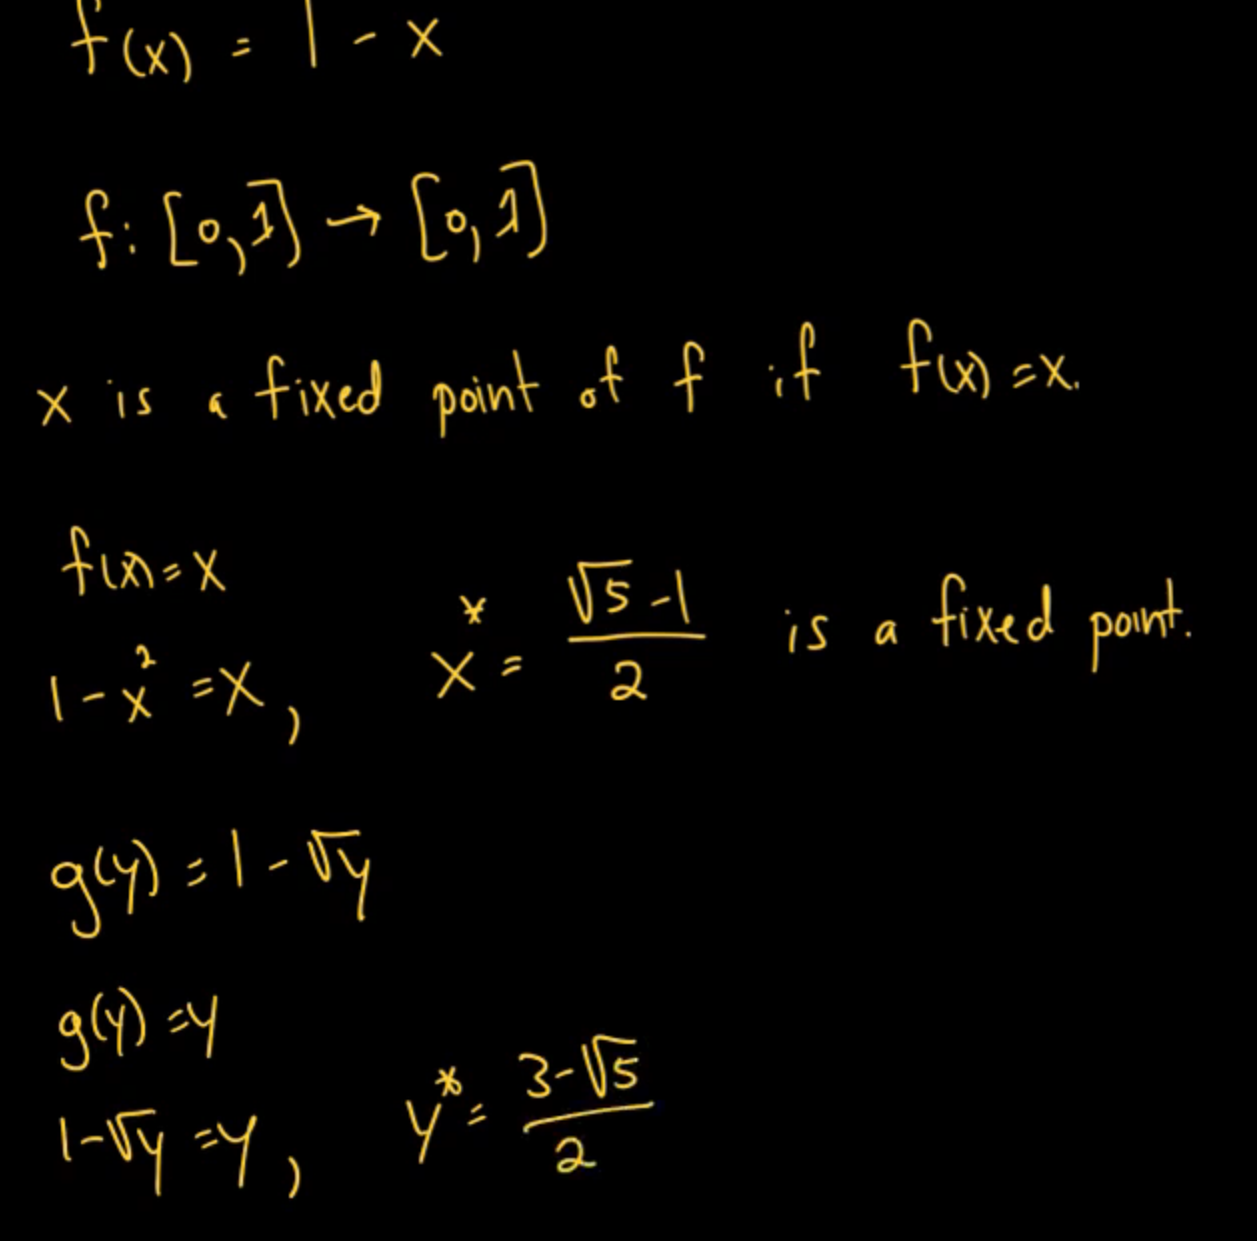 f(x) = 1 - x
f: [0,1] → [0,1]
x is a fixed point of f if f(x) = x.
f(x) = x
1 - x² = x, x* = (√5 - 1)/2 is a fixed point.
g(y) = 1 - √y
g(y) = y
1 - √y = y, y* = (3 - √5)/2